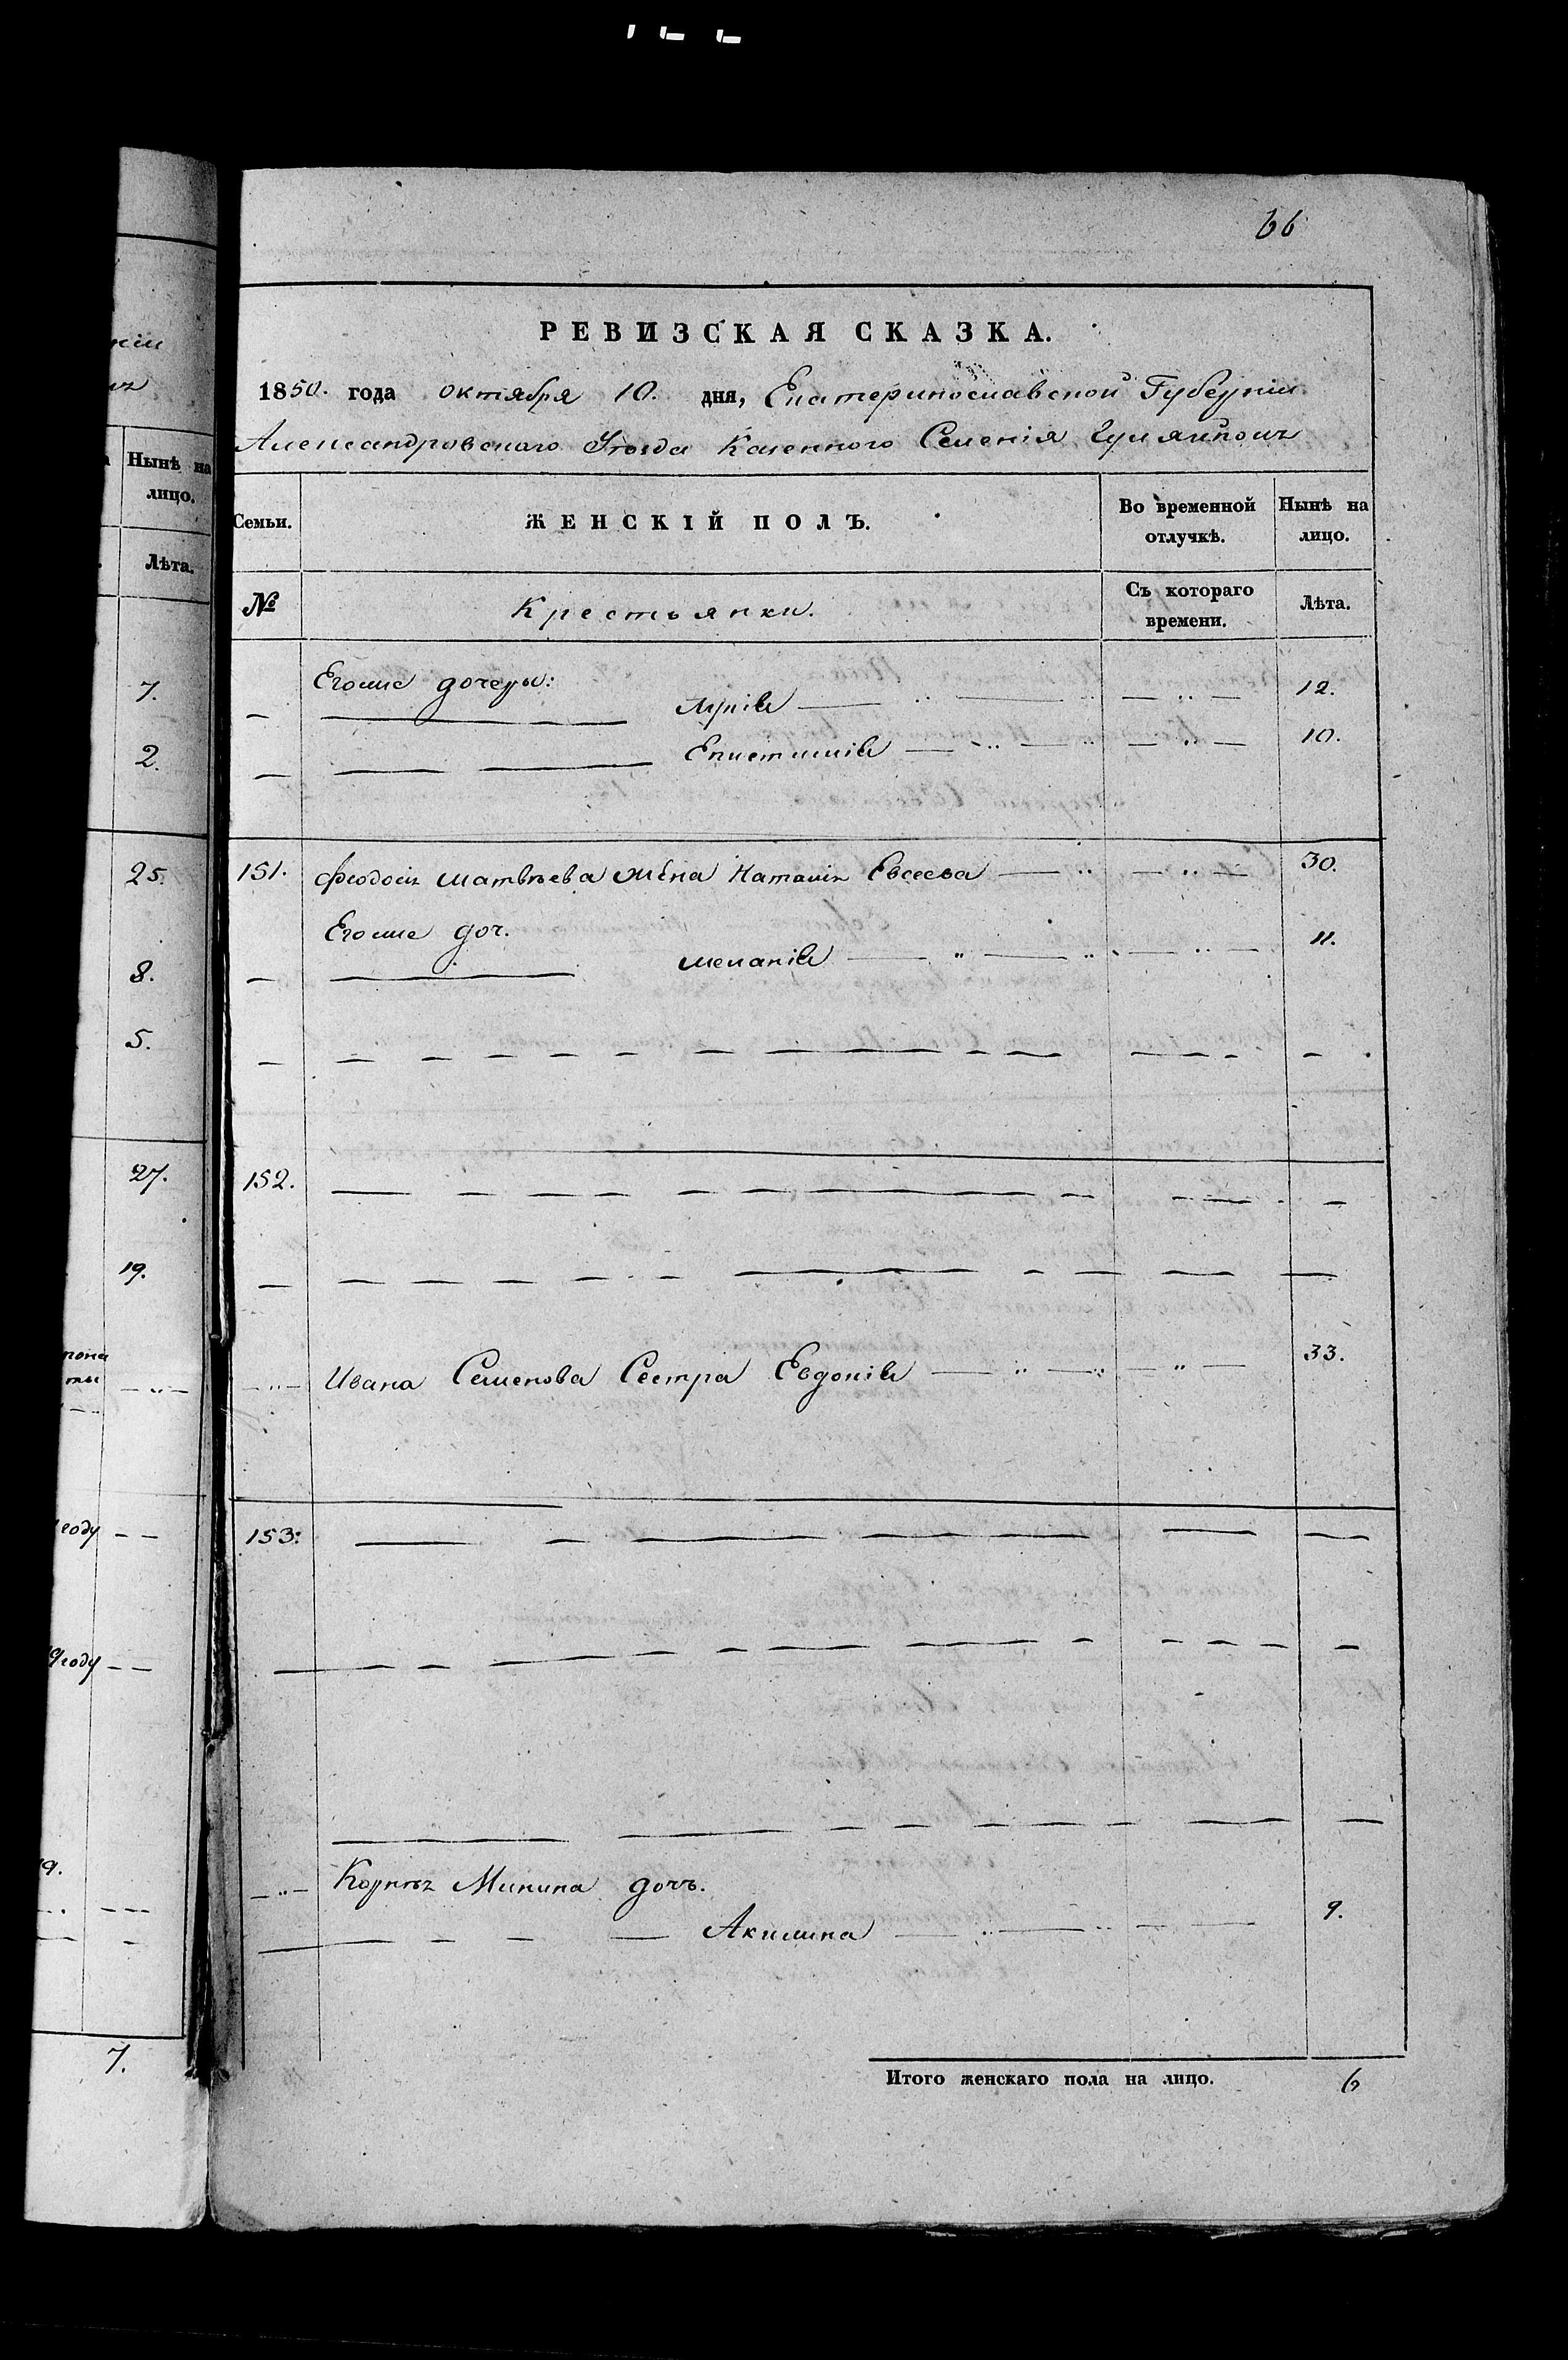 66
РЕВИЗСКАЯ СКАЗКА.
1850. года октября 10. дня, Екатеринославской Губерніи
Александровскаго Уѣзда Казенного Селенія Гуляйполь
Нынѣ на
лицо.
Лѣта.
7.
2.
25.
8.
5.
27.
19.
году
9 году
9.
7.
Семьи.
ЖЕНСКІЙ ПОЛЪ.
Во временной
отлучкѣ.
Нынѣ на
лицо.
№
Крестьянки.
Съ котораго
времени.
Лѣта.
Егоже дочеры:
12.
Епистимія 10.
151. Феодосія Матвѣева жена Наталія Евсеева 30.
Егоже доч.
Меланія 11.
152.
Ивана Семенова Сестра Евдокія 33.
153:
Корнѣя Минина дочь.
Акилина 9.
Итого женскаго пола на лицо. 6